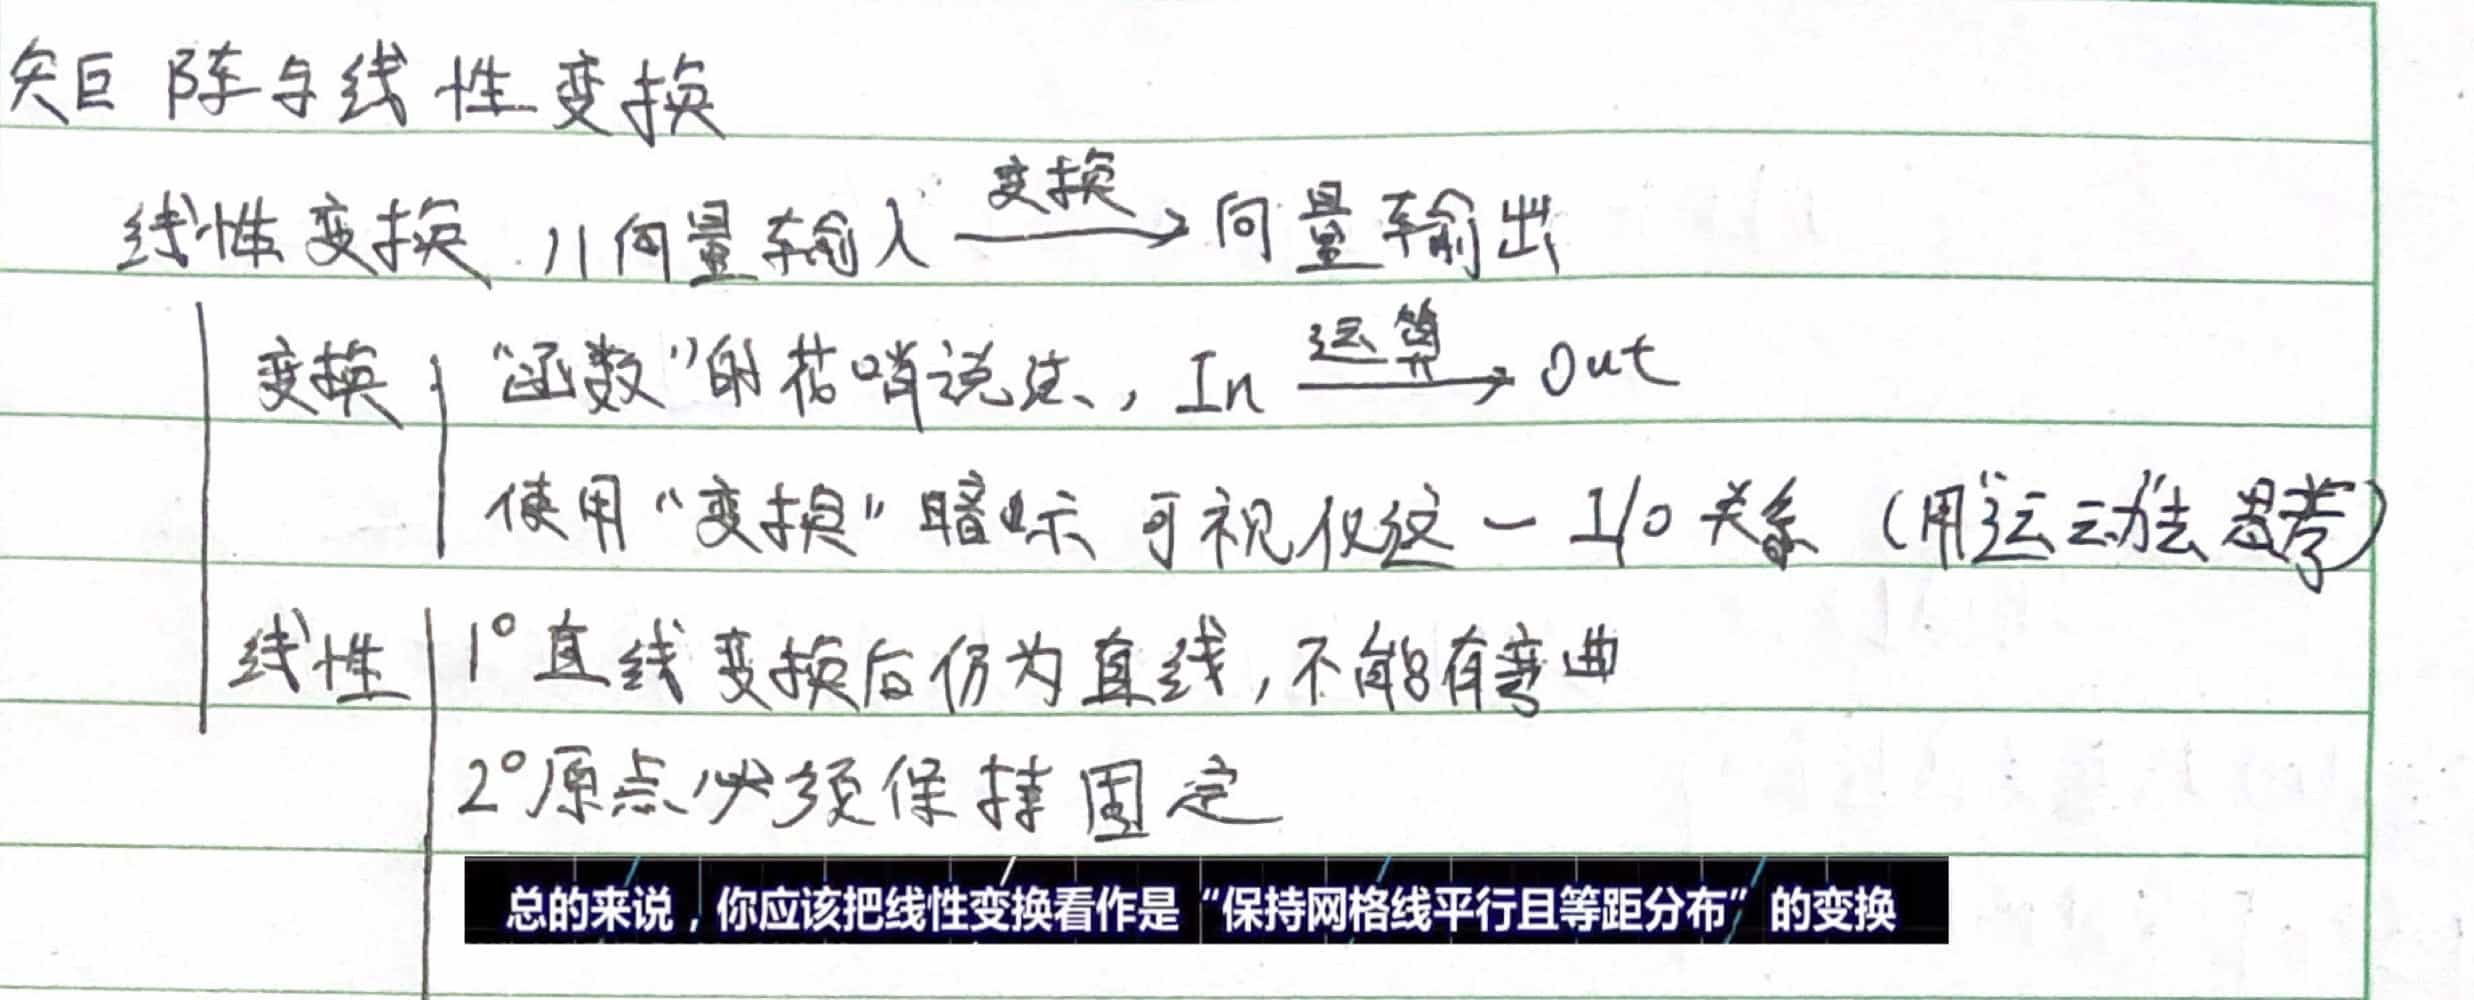 矩阵与线性变换
线性变换 // 向量输入 变换→ 向量输出
变换 "函数"的花哨说法, In 运算→ Out
使用"变换"暗示 可视化这一 I/O 关系 (用"运动"去思考)
线性 1° 直线变换后仍为直线, 不能有弯曲
2° 原点必须保持固定
总的来说，你应该把线性变换看作是“保持网格线平行且等距分布”的变换